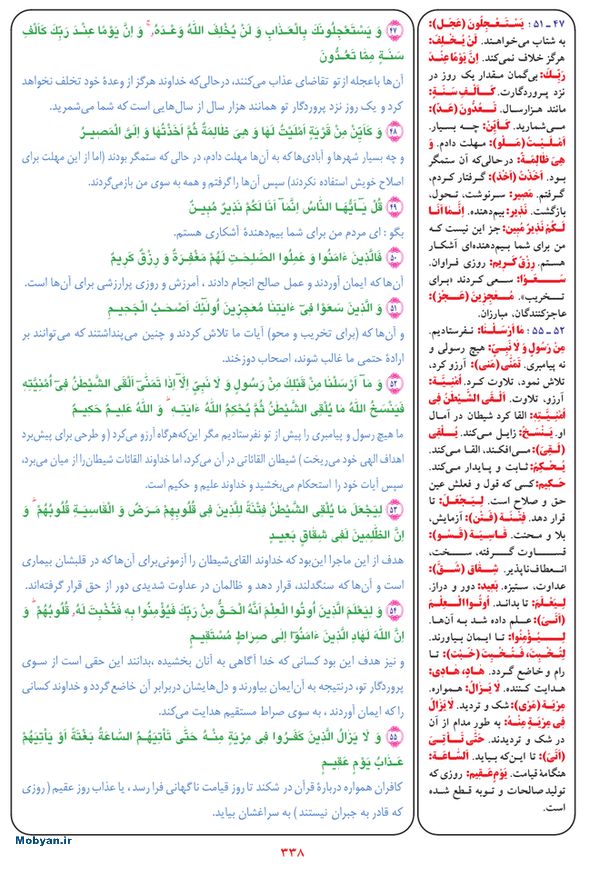 ۴۷ ـ ۵۱ : یَسْتَعْجِلُونَ (عَجَل):
به شتاب می‌خواهند. لَنْ یُخْلِفَ:
هرگز خلاف نمی‌کند. اِنَّ یَوْمًا عِنْدَ
رَبِّکَ: بی‌گمان مقدار یک روز در
نزد پروردگارت. کَأَلْفِ سَنَةٍ:
مانند هزارسال. تَعُدُّونَ (عَدّ):
می‌شمارید. کَأَیِّنْ: چه بسیار.
أَمْلَیْتُ (مَلْو): مهلت دادم. وَ
هِیَ ظَالِمَةٌ: درحالی‌که آن ستمگر
بود. أَخَذْتُ (أَخْذ): گرفتار کردم،
گرفتم. مَصِیر: سرنوشت، تحول،
بازگشت. نَذِیر: بیم‌دهنده. اِنَّمَا أَنَا
لَکُمْ نَذِیرٌ مُبِین: جز این نیست که
من برای شما بیم‌دهنده‌ای آشکار
هستم. رِزْقٌ کَرِیم: روزی فراوان.
سَعَوْا: سعی کردند «برای
تخریب». مُعجِزِینَ (عَجْز):
عاجزکنندگان، مبارزان.
۵۲ ـ ۵۵ : مَا أَرْسَلْنَا: نفرستادیم.
مِنْ رَسُولٍ وَ لَا نَبِیٍّ: هیچ رسولی و
نه پیامبری. تَمَنَّی (مَنی): آرزو کرد،
تلاش نمود، تلاوت کرد. أُمْنِیَّة:
آرزو، تلاوت. أَلْقَی الشَّیْطٰنُ فِی
أُمْنِیَّتِهِ: القا کرد شیطان در آمال
او. یَنْسَخُ: زایل می‌کند. یُلْقِی
(لَقِیَ): می‌افکند، القا می‌کند.
یُحْکِمُ: ثابت و پایدار می‌کند.
حَکِیم: کسی که قول و فعلش عین
حق و صلاح است. لِیَجْعَلَ: تا
قرار دهد. فِتْنَة (فَتْن): آزمایش،
بلا و محنت. قَاسِیَة (قَسْو):
قساوت گرفته، سخت،
انعطاف‌ناپذیر. شِقَاق (شَقّ):
عداوت، ستیزه. بَعِید: دور و دراز.
لِیَعْلَمَ: تا بداند. أُوتُوا الْعِلْمَ
(أَتی): علم داده شد به آن‌ها.
لِیُؤْمِنُوا: تا ایمان بیاورند.
لِتُخْبِتَ، فَتُخْبِتَ (خَبْت): تا
رام و خاضع گردد. هَادِ، هَادِی:
هدایت کننده. لَا یَزَالُ: همواره.
مِرْیَة (مَرْی): شک و تردید. لَا یَزَالُ
فِی مِرْیَةٍ مِنْهُ: به طور مدام از آن
در شک و تردیدند. حَتَّی تَأْتِیَ
(أَتی): تا این‌که بیاید. السَّاعَة:
هنگامهٔ قیامت. یَوْمٍ عَقِیم: روزی که
تولید صالحات و توبه قطع شده
است.
۴۷ وَ یَسْتَعْجِلُونَکَ بِالْعَذَابِ وَ لَنْ یُخْلِفَ اللّٰهُ وَعْدَهُ وَ اِنَّ یَوْمًا عِنْدَ رَبِّکَ کَأَلْفِ
سَنَةٍ مِمَّا تَعُدُّونَ
آن‌ها باعجله از تو تقاضای عذاب می‌کنند، درحالی‌که خداوند هرگز از وعدهٔ خود تخلف نخواهد
کرد و یک روز نزد پروردگار تو همانند هزار سال از سال‌هایی است که شما می‌شمرید.
۴۸ وَ کَأَیِّنْ مِنْ قَرْیَةٍ أَمْلَیْتُ لَهَا وَ هِیَ ظَالِمَةٌ ثُمَّ أَخَذْتُهَا وَ اِلَیَّ الْمَصِیرُ
و چه بسیار شهرها و آبادی‌ها که به آن‌ها مهلت دادم، در حالی که ستمگر بودند (اما از این مهلت برای
اصلاح خویش استفاده نکردند) سپس آن‌ها را گرفتم و همه به سوی من بازمی‌گردند.
۴۹ قُلْ یٰأَیُّهَا النَّاسُ اِنَّمَا أَنَا لَکُمْ نَذِیرٌ مُبِینٌ
بگو : ای مردم من برای شما بیم‌دهندهٔ آشکاری هستم.
۵۰ فَالَّذِینَ ءَامَنُوا وَ عَمِلُوا الصّٰلِحٰتِ لَهُمْ مَغْفِرَةٌ وَ رِزْقٌ کَرِیمٌ
آن‌ها که ایمان آوردند و عمل صالح انجام دادند ، آمرزش و روزی پرارزشی برای آن‌ها است.
۵۱ وَ الَّذِینَ سَعَوْا فِی ءَایٰتِنَا مُعٰجِزِینَ أُولٰئِکَ أَصْحٰبُ الْجَحِیمِ
و آن‌ها که (برای تخریب و محو) آیات ما تلاش کردند و چنین می‌پنداشتند که می‌توانند بر
ارادهٔ حتمی ما غالب شوند، اصحاب دوزخند.
۵۲ وَ مَا أَرْسَلْنَا مِنْ قَبْلِکَ مِنْ رَسُولٍ وَ لَا نَبِیٍّ اِلَّا اِذَا تَمَنَّی أَلْقَی الشَّیْطٰنُ فِی أُمْنِیَّتِهِ
فَیَنْسَخُ اللّٰهُ مَا یُلْقِی الشَّیْطٰنُ ثُمَّ یُحْکِمُ اللّٰهُ ءَایٰتِهِ وَ اللّٰهُ عَلِیمٌ حَکِیمٌ
ما هیچ رسول و پیامبری را پیش از تو نفرستادیم مگر این‌که هرگاه آرزو می‌کرد (و طرحی برای پیش‌برد
اهداف الهی خود می‌ریخت) شیطان القائاتی در آن می‌کرد، اما خداوند القائات شیطان را از میان می‌برد،
سپس آیات خود را استحکام می‌بخشید و خداوند علیم و حکیم است.
۵۳ لِیَجْعَلَ مَا یُلْقِی الشَّیْطٰنُ فِتْنَةً لِلَّذِینَ فِی قُلُوبِهِمْ مَرَضٌ وَ الْقَاسِیَةِ قُلُوبُهُمْ وَ
اِنَّ الظّٰلِمِینَ لَفِی شِقَاقٍ بَعِیدٍ
هدف از این ماجرا این‌بود که خداوند القای‌شیطان را آزمونی‌برای آن‌ها که در قلبشان بیماری
است و آن‌ها که سنگدلند، قرار دهد و ظالمان در عداوت شدیدی دور از حق قرار گرفته‌اند.
۵۴ وَ لِیَعْلَمَ الَّذِینَ أُوتُوا الْعِلْمَ أَنَّهُ الْحَقُّ مِنْ رَبِّکَ فَیُؤْمِنُوا بِهِ فَتُخْبِتَ لَهُ قُلُوبُهُمْ وَ
اِنَّ اللّٰهَ لَهَادِ الَّذِینَ ءَامَنُوا اِلٰی صِرَاطٍ مُسْتَقِیمٍ
و نیز هدف این بود کسانی که خدا آگاهی به آنان بخشیده ،بدانند این حقی است از سوی
پروردگار تو، درنتیجه به آن‌ایمان بیاورند و دل‌هایشان دربرابر آن خاضع گردد و خداوند کسانی
را که ایمان آوردند ، به سوی صراط مستقیم هدایت می‌کند.
۵۵ وَ لَا یَزَالُ الَّذِینَ کَفَرُوا فِی مِرْیَةٍ مِنْهُ حَتَّی تَأْتِیَهُمُ السَّاعَةُ بَغْتَةً أَوْ یَأْتِیَهُمْ
عَذَابُ یَوْمٍ عَقِیمٍ
کافران همواره دربارهٔ قرآن در شکند تا روز قیامت ناگهانی فرا رسد ، یا عذاب روز عقیم (روزی
که قادر به جبران نیستند ) به سراغشان بیاید.
Mobyan.ir
۳۳۸